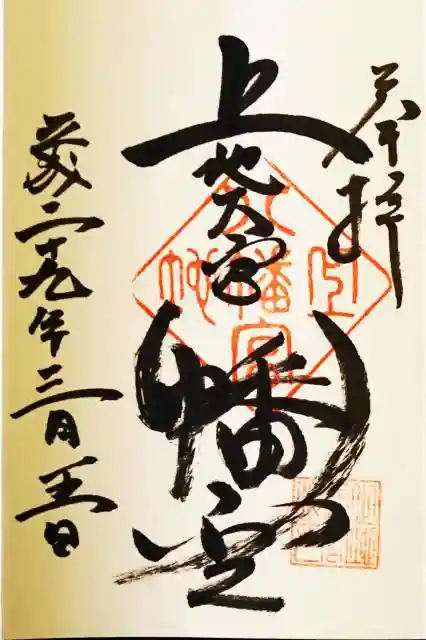 奉拝
上地大宮
八幡宮
平成二十九年三月五日
上地
八幡宮